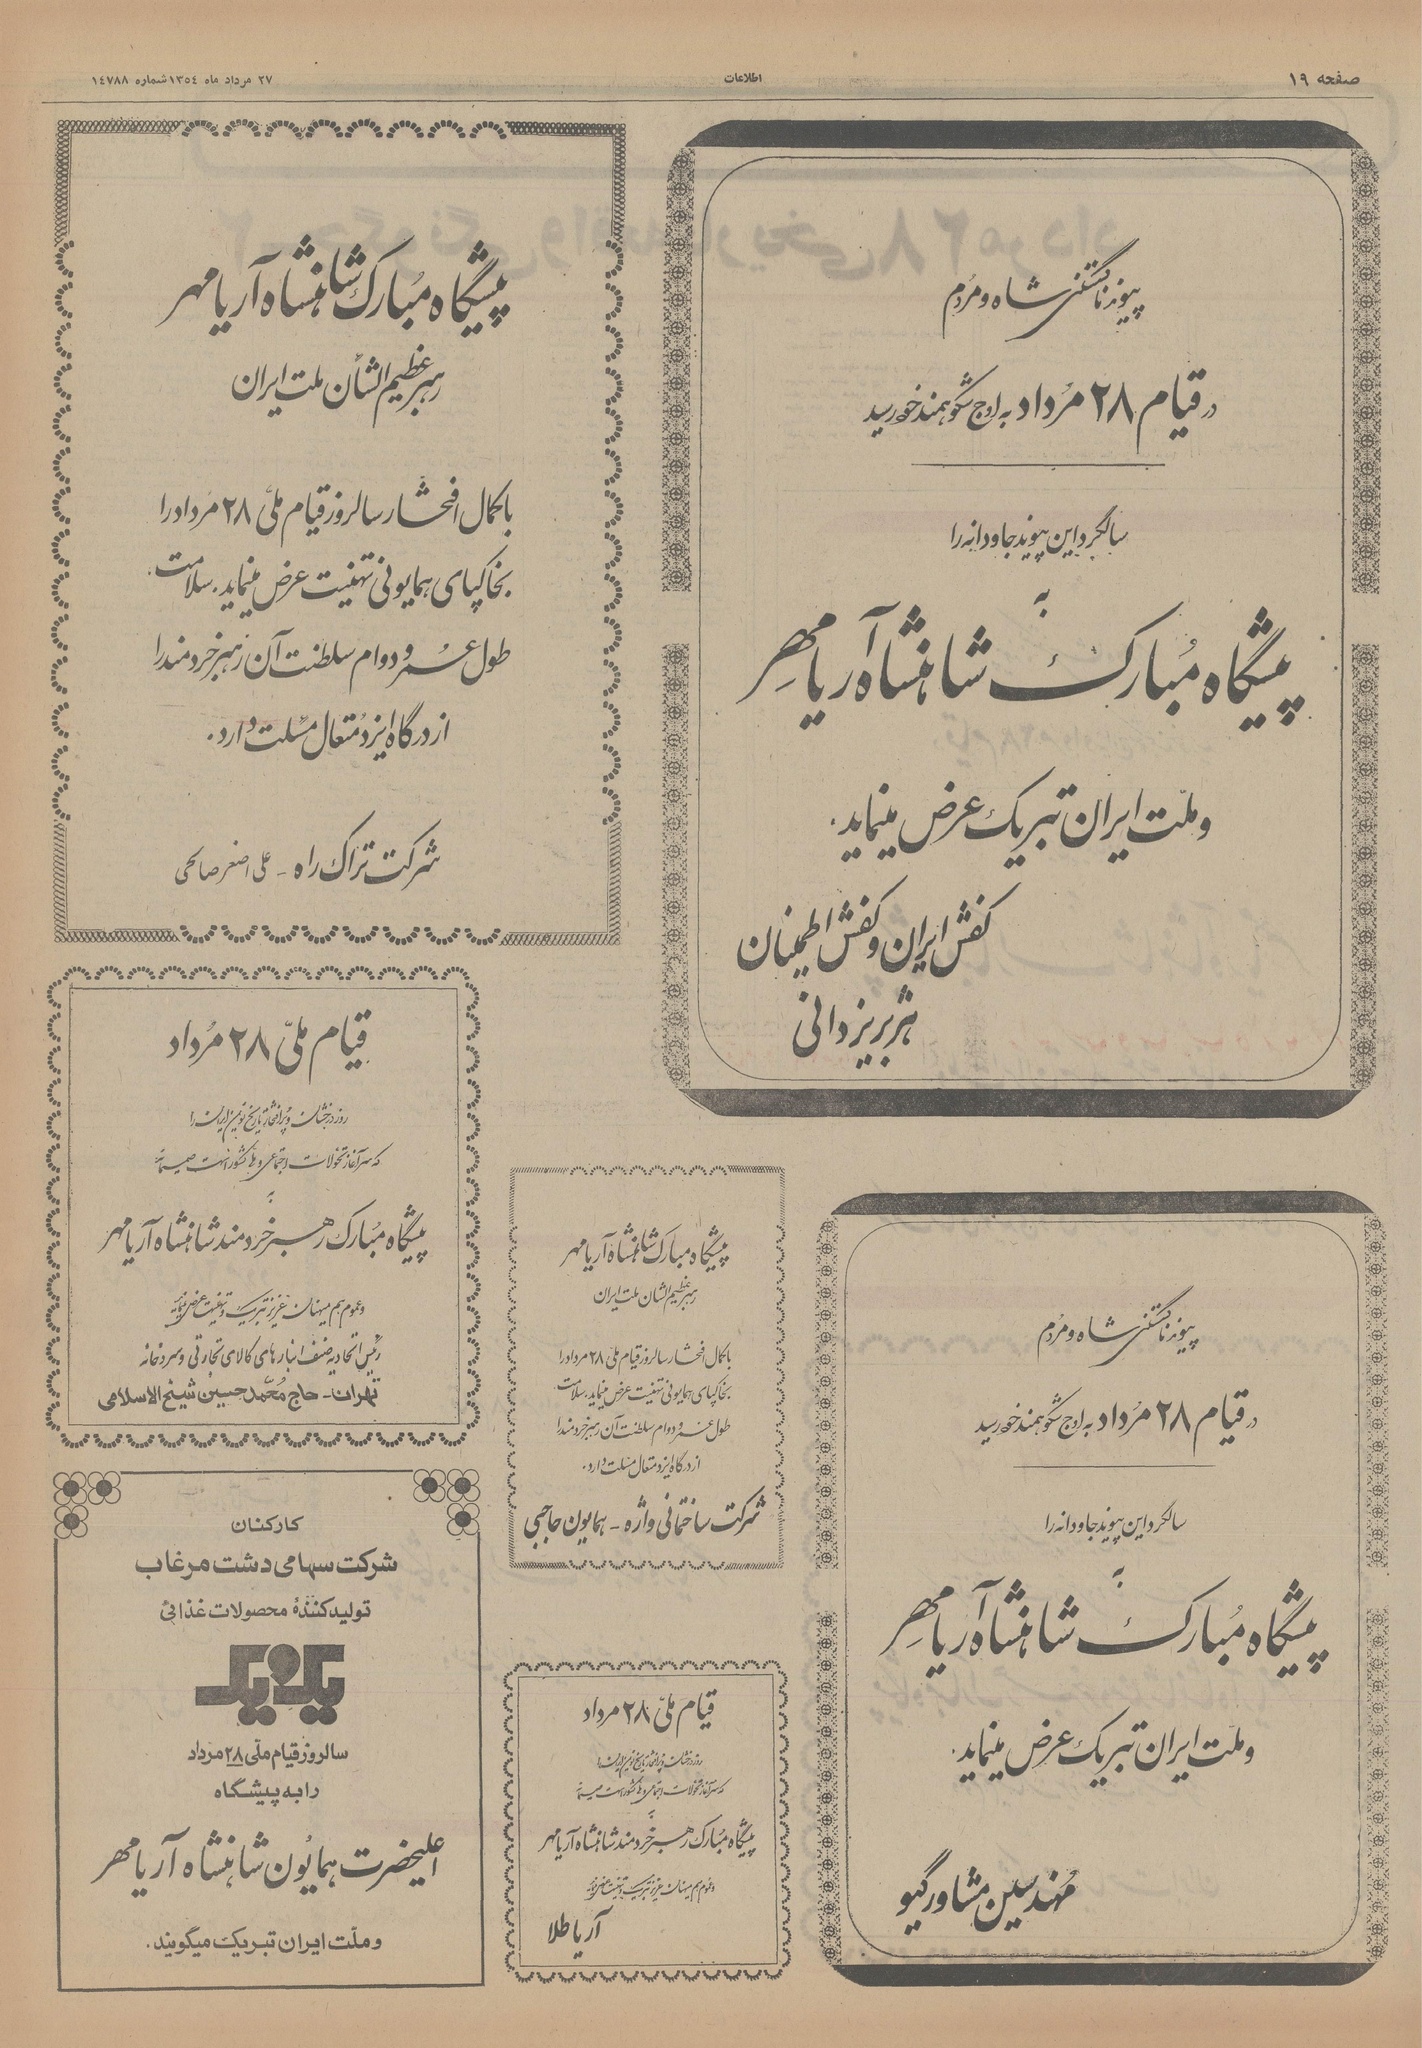 صفحه ۱۹
اطلاعات
۲۷ مرداد ماه ۱۳۵٤ شماره ۱٤۷۸۸
پیوند ناگسستنی شاه و مردم
در قیام ۲۸ مُرداد به اوج شکوهمند خود رسید
سالگرد این پیوند جاودانه را
به
پیشگاه مُبارک شاهنشاه آریامهِر
و ملّت ایران تبریک عرض مینماید.
کفش ایران و کفش اطمینان
هژبر یزدانی
پیشگاه مُبارک شاهنشاه آریامهر
رهبر عظیم‌الشأن ملت ایران
با کمال افتخار سالروز قیام ملّی ۲۸ مُرداد را
بخاکپای همایونی تهنیت عرض مینماید. سلامت
طول عُمر و دوام سلطنت آن رهبر خردمند را
از درگاه ایزد مُتعال مسئلت دارد.
شرکت تراک راه - علی اصغر صالحی
قیام ملّی ۲۸ مُرداد
روز درخشان و پُرافتخار تاریخ نوین ایران را
که سرآغاز تحولات اجتماعی و ملی کشور است صمیمانه
به
پیشگاه مُبارک رهبر خردمند شاهنشاه آریامهر
و عموم هم میهنان عزیز تبریک و تهنیت عرض مینماید
رئیس اتحادیه صنف انبارهای کالای تجارتی و سردخانه
تهران - حاج مُحمّد حسین شیخ الاسلامی
پیشگاه مُبارک شاهنشاه آریامهر
رهبر عظیم‌الشان ملت ایران
با کمال افتخار سالروز قیام ملّی ۲۸ مرداد را
بخاکپای همایونی تهنیت عرض مینماید. سلامت
طول عُمر و دوام سلطنت آن رهبر خردمند را
از درگاه ایزد متعال مسئلت دارد.
شرکت ساختمانی واژه - همایون حاجبی
پیوند ناگسستنی شاه و مردم
در قیام ۲۸ مُرداد به اوج شکوهمند خود رسید
سالگرد این پیوند جاودانه را
به
پیشگاه مُبارک شاهنشاه آریامهِر
و ملّت ایران تبریک عرض مینماید.
مُهندسین مشاور گیو
کارکنان
شرکت سهامی دشت مرغاب
تولیدکنندهٔ محصولات غذائی
یک و یک
سالروز قیام ملّی ۲۸ مرداد
را به پیشگاه
اعلیحضرت همایُون شاهنشاه آریامهر
و ملّت ایران تبریک میگویند.
قیام ملّی ۲۸ مرداد
روز درخشان و پُرافتخار تاریخ نوین ایران را
که سرآغاز تحولات اجتماعی و ملی کشور است صمیمانه
به
پیشگاه مُبارک رهبر خردمند شاهنشاه آریامهر
و عموم هم میهنان عزیز تبریک و تهنیت عرض مینماید
آریا طلا